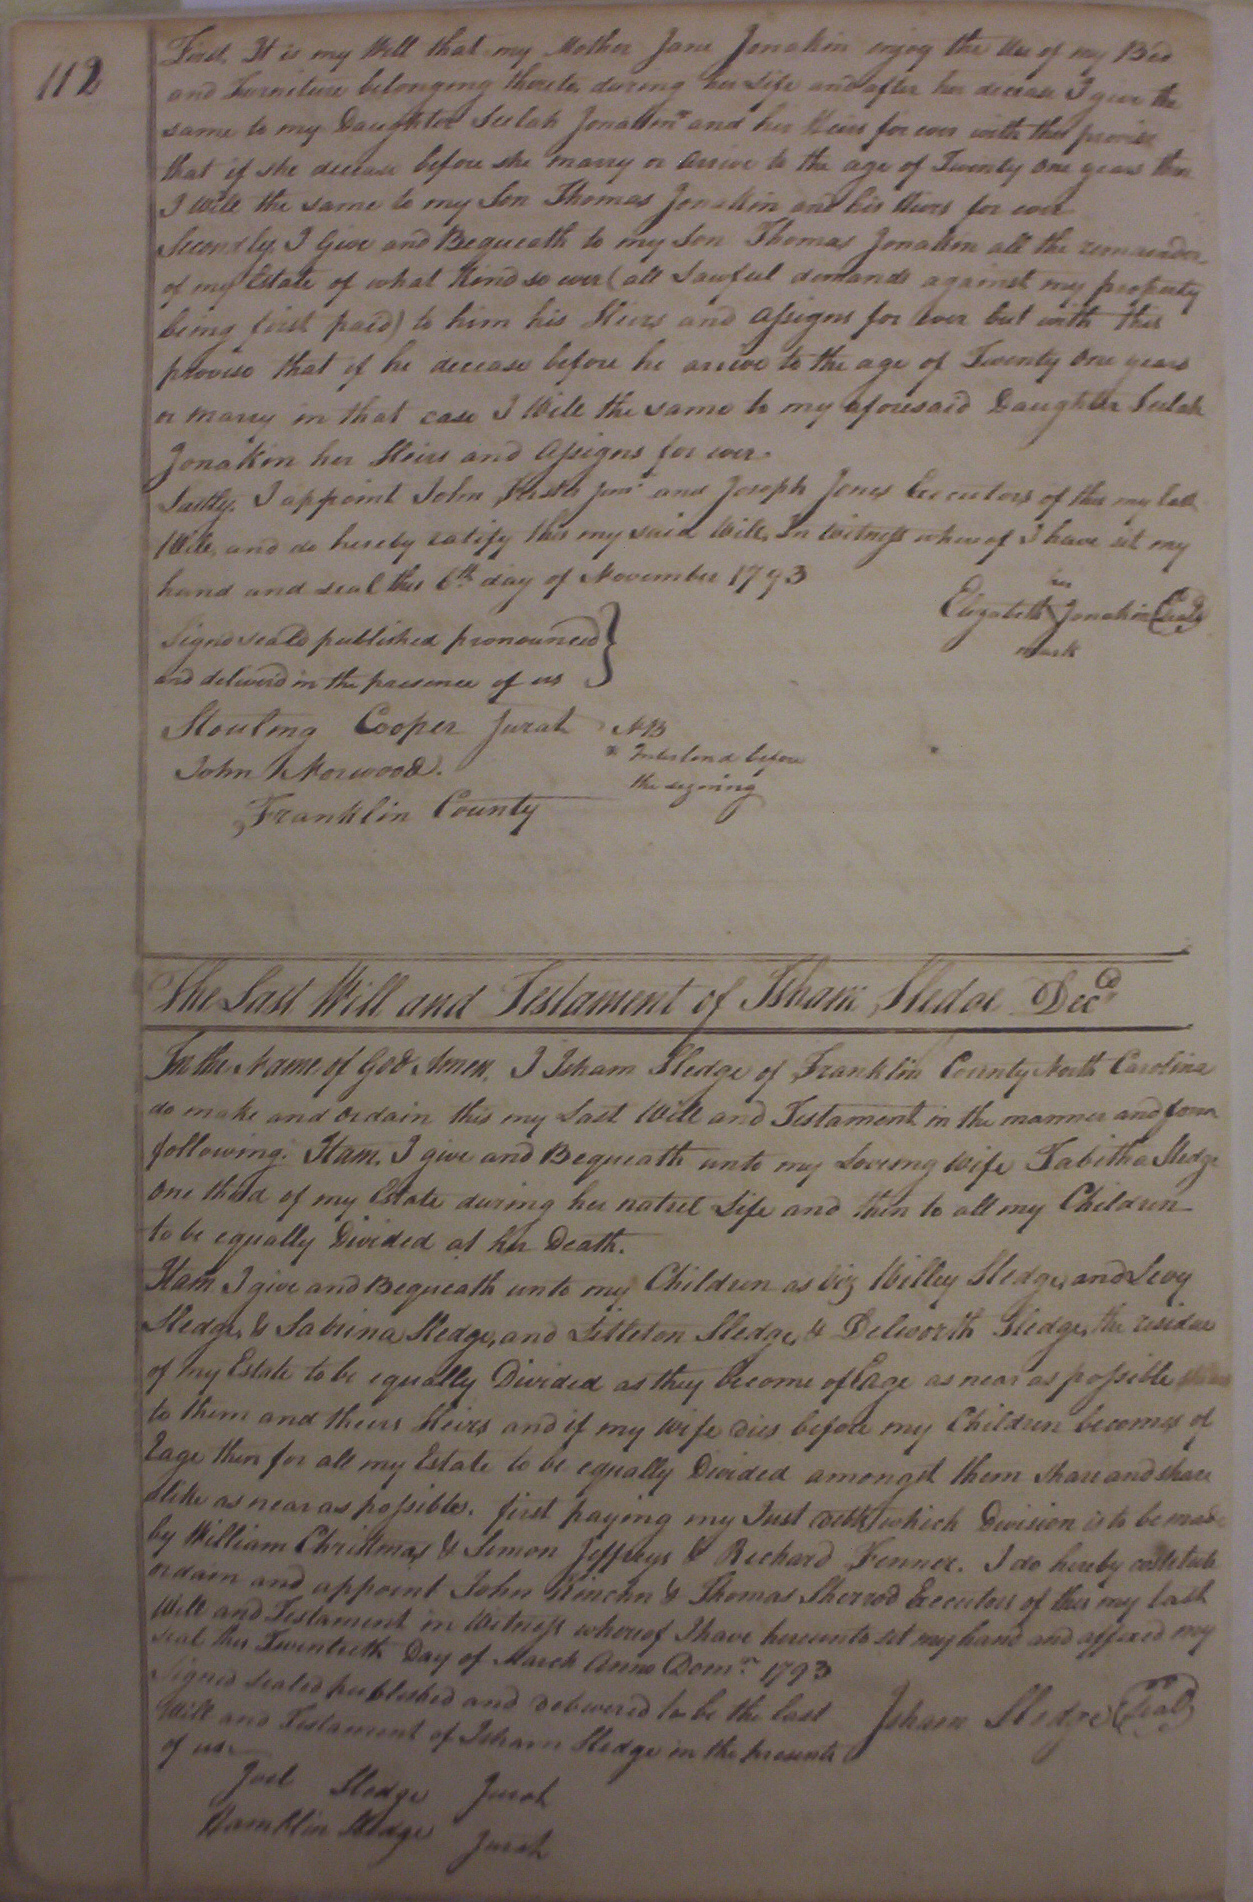 112
First. It is my Will that my Mother Jane Jonakin enjoy the Use of my Bed
and Furniture belonging thereto during her Life and after her decease I give the
same to my Daughter Seelah Jonakin * and her Heirs for ever with this proviso
that if she decease before she marry or arrive to the age of Twenty One years then
I Will the same to my Son Thomas Jonakin and his Heirs for ever
Secondly. I Give and Bequeath to my Son Thomas Jonakin all the remainder
of my Estate of what Kind so ever (all Lawful demands against my property
being first paid) to him his Heirs and Assigns for ever but with this
proviso that if he decease before he arrive to the age of Twenty One years
or marry in that case I Will the same to my aforesaid Daughter Seelah
Jonakin her Heirs and Assigns for ever.
Lastly. I appoint John Junr and Joseph Jones Executors of this my last
Will, and do hereby ratify this my said Will, In Witness whereof I have set my
hand and seal this 6th day of November 1793
her
Elizabeth Jonakin (Seal)
mark
Signd seald published pronounced
and deliverd in the presence of us
Stouling Cooper Jurat
John Norwood.
NB
* Interlind before
the signing
Franklin County
The Last Will and Testament of Isham Sledge Decd
In the Name of God Amen. I Isham Sledge of Franklin County North Carolina
do make and ordain this my Last Will and Testament in the manner and form
following. Itam. I give and Bequeath unto my Loveing Wife Tabitha Sledge
One third of my Estate during her natrel Life and then to all my Children
to be equally Divided at her Death.
Itam I give and Bequeath unto my Children as Viz Willey Sledge, and Levy
Sledge, & Sabrina Sledge, and Littleton Sledge, & Delworth Sledge, the residue
of my Estate to be equally Divided as they become of Eage as near as possible
to them and theirs Heirs and if my Wife dies before my Children becomes of
Eage then for all my Estate to be equally Divided amongst them Share and share
alike as near as possible. first paying my Just debts which Division is to be made
by William Christmas & Simon Jeffreys & Richard Fenner. I do hereby constitute
ordain and appoint John Kinchn & Thomas Sherrod Executors of this my last
Will and Testament in Witness whereof I have hereunto set my hand and affixed my
seal this Twentieth Day of March Anno Dom. 1793
Signed sealed published and delivered to be the last
Will and Testament of Isham Sledge in the presents
of us
Isham Sledge (Seal)
Joel Sledge Jurat
Hamklin Sledge Jurat